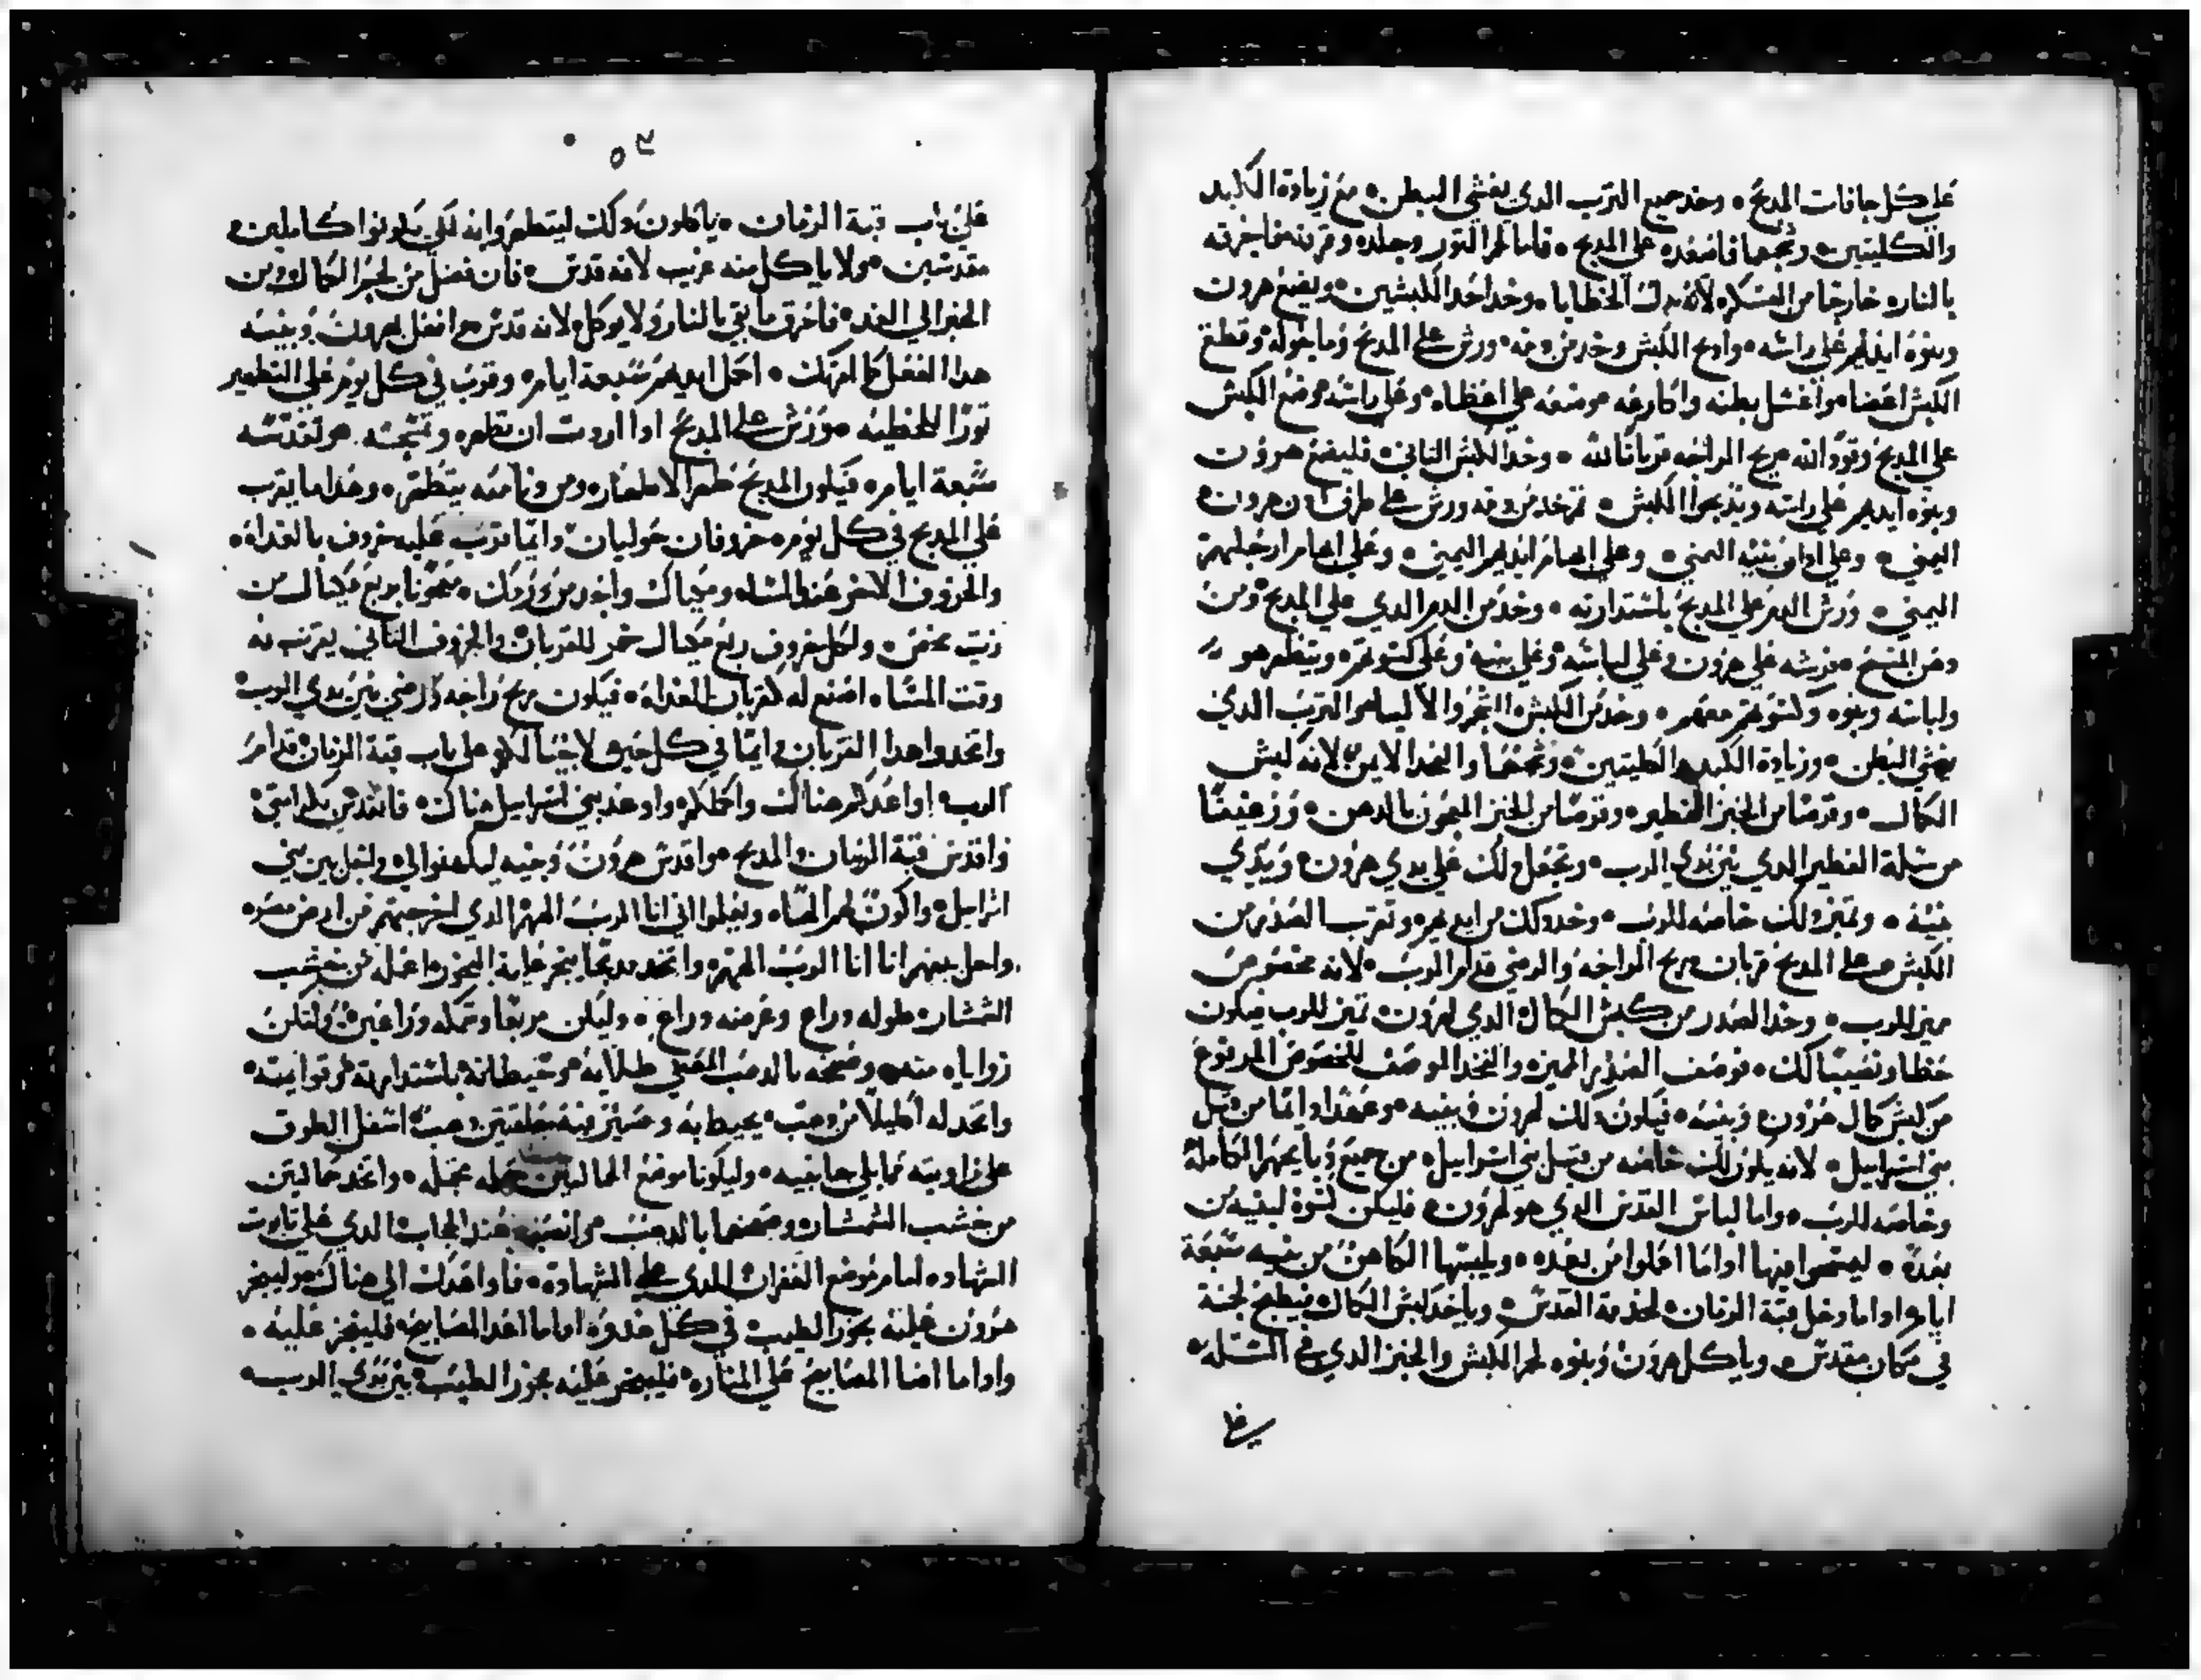 علي كل حافات المدبح • وخد جميع الترب الدي يغشي البطن • مع زيادة الكبد
والكليتين • وشحمها فاصعده علي المدبح • فاما لحم التور وجلده وفرته فاحرقه
بالنار • خارجا من العسكر • لانه بدل الخطايا • وخد احد الكبشين • ويضع هرون
وبنوه ايديهم علي راسه • وادبح الكبش وخد من دمه • ورش علي المدبح وما حوله وقطع
الكبش اعضا • واغسل بطنه واكارعه • وضعه علي اعضاه • وعلي راسه • وضع الكبش
علي المدبح وقودا لله • ريح المراجه قربانا لله • وخد الكبش التاني • فليضع هرون
وبنوه ايديهم علي راسه ويدبحوا الكبش • تم خد من دمه ورش علي طرف ادن هرون •
اليمني • وعلي ادان بنيه اليمني • وعلي ابهام ايديهم اليمني • وعلي ابهام ارجلهم
اليمني • ورش الدم علي المدبح باستدارته • وخد من الدم الدي علي المدبح ومن
دهن المسح • فرشه علي هرون وعلي لباسه وعلي بنيه وعلي كسوتهم • ويتطهر هو
ولباسه وبنوه وكسوتهم معهم • وخد من الكبش الشحم والاليه والترب الدي
يغشي البطن • وزيادة الكبد والكليتين • وشحمها والفخد الايمن • لانه كبش
الكمال • وقرصا من الخبز الفطير • وقرصا من الخبز المعجون بالدهن • ورغيفا
من سلة الفطير الدي بين يدي الرب • وتجعل دلك علي يدي هرون • ويدي
بنيه • وتميز دلك خاصه للرب • وخد دلك من ايديهم • وتقرب الصدر من
الكبش • علي المدبح قربان • ريح الراجه والرضي قدام الرب • لانه مخصوص
مميز للرب • وخد الصدر من كبش الكمال الدي لهرون • تميز للرب فيكون
حظا ونصيبا لك • فوصف الصدر المميز • والفخد الموصف للخصوص المرفوع
من كبش كمال هرون • وبنيه • فيكون دلك لهرون وبنيه • وعهدا دايما من قبل
بني اسراييل • لانه يكون لك خاصه من قبل بني اسراييل • من جميع دبايحهم الكامله
وخاصه للرب • واما لباس القدس الدي هو لهرون • فليكن كسوة لبنيه من
بعده • ليمسحوا فيها اداما اكملوا من بعده • ويلبسها الكاهن من بنيه سبعة
ايام • اداما دخل قبة الزمان • لخدمة القدس • وياخد كبش الكمال فيطبخ لحمه
في مكان مقدس • وياكل هرون وبنوه لحم الكبش والخبز الدي في السله •
علي باب قبة الزمان • ياكلون دلك ليتطهروا به لكي يكونوا كاملين •
مقدسين • ولا ياكل منه غريب لانه قدس • فان فضل من لحم الكمال ومن
الخبز الي الغد • فاحرق ما بقي بالنار ولا يوكل لانه قدس • افعل لهرون وبنيه
هدا الفعل كما امرتك • اكمل ايديهم سبعة ايام • وقرب في كل يوم علي التطهير
تورا للخطيه • ورش علي المدبح ادا اردت ان تطهره وتمسحه • وتقدسه
سبعة ايام • فيكون المدبح طهر الاطهار • ومن دنا منه يتطهر • وهدا ما يقرب
علي المدبح في كل يوم • خروفان حوليان • دايما تقرب عليه خروف بالغداه •
والخروف الاخر عند المساه • ومكيال واحد من درمك • معجونا بربع مكيال من
زيت مخصص • ولكل خروف ربع مكيال خمر للقربان والخروف التاني يقرب به
وقت المساء • اصنع له كقربان الغداه • فيكون ريح راجه ورضي بين يدي الرب •
واتخدوا هدا القربان دايما في كل حين لاجيالكم علي باب قبة الزمان قدام
الرب • اواعدكم هنالك واكلكم • واوعد بني اسراييل هناك • فاتقدس بكرامتي •
واقدس قبة الزمان والمدبح • واقدس هرون وبنيه ليكهنوا لي • ولنحل بين بني
اسراييل • واكون لهم الها • ويعلموا اني انا الرب الههم الدي اخرجتهم من ارض مصر •
واحل بينهم انا انا الرب الههم • واتخد مدبحا يبخر عليه البخور • اعمله من خشب
الشمشار • طوله دراع وعرضه دراع • وليكن مربعا وسمكه دراعين • ولتكن
زواياه منه • وصفحه بالدهب المصفي طلايه • وحيطانه باستدارته • وقوايمه •
واتخد له اكليلا من دهب • يحيط به • وصير فيه حلقتين دهب • اسفل الطوق
علي زاويته مما يلي جانبيه • وليكونا موضع الحمالين حمله بحمله • واتخد حمالتين
من خشب الشمشار • وصفحهما بالدهب • وانصبه عند الحجاب الدي علي تابوت
الشهاده • امام موضع الغفران الدي علي الشهادة • فاواعدك الي هناك • وليبخر
هرون عليه بخور الطيب في كل غدوه • اداما اعد المصابيح • فليبخر عليه •
واداما اضا المصابيح علي المناره • فليبخر عليه بخور الطيب • بين يدي الرب •